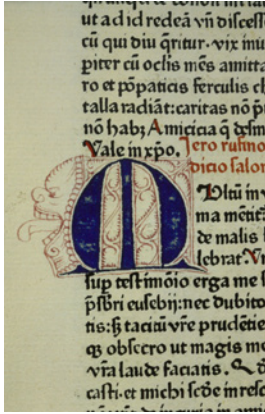 ut ad id redeā vn̄ discess
cū qui diu q̄ritur. vix inu
piter cū oclis mēs amitta
ro et pōpaticis ferculis
talla radiāt: caritas nō p̄
nō habȝ Amicicia q̄ desin
Vale in xp̄o. Jero rufino
dicio salo
Mltū in v
ma mētit
de malis
lebrat. Vn
sup testimōio erga me
p̄sbri eusebij: nec dubito
tis: ꝫ tacitū vr̄e prudētie
qȝ obsecro ut magis me
vr̄a laude faciatis.
casti. et michi